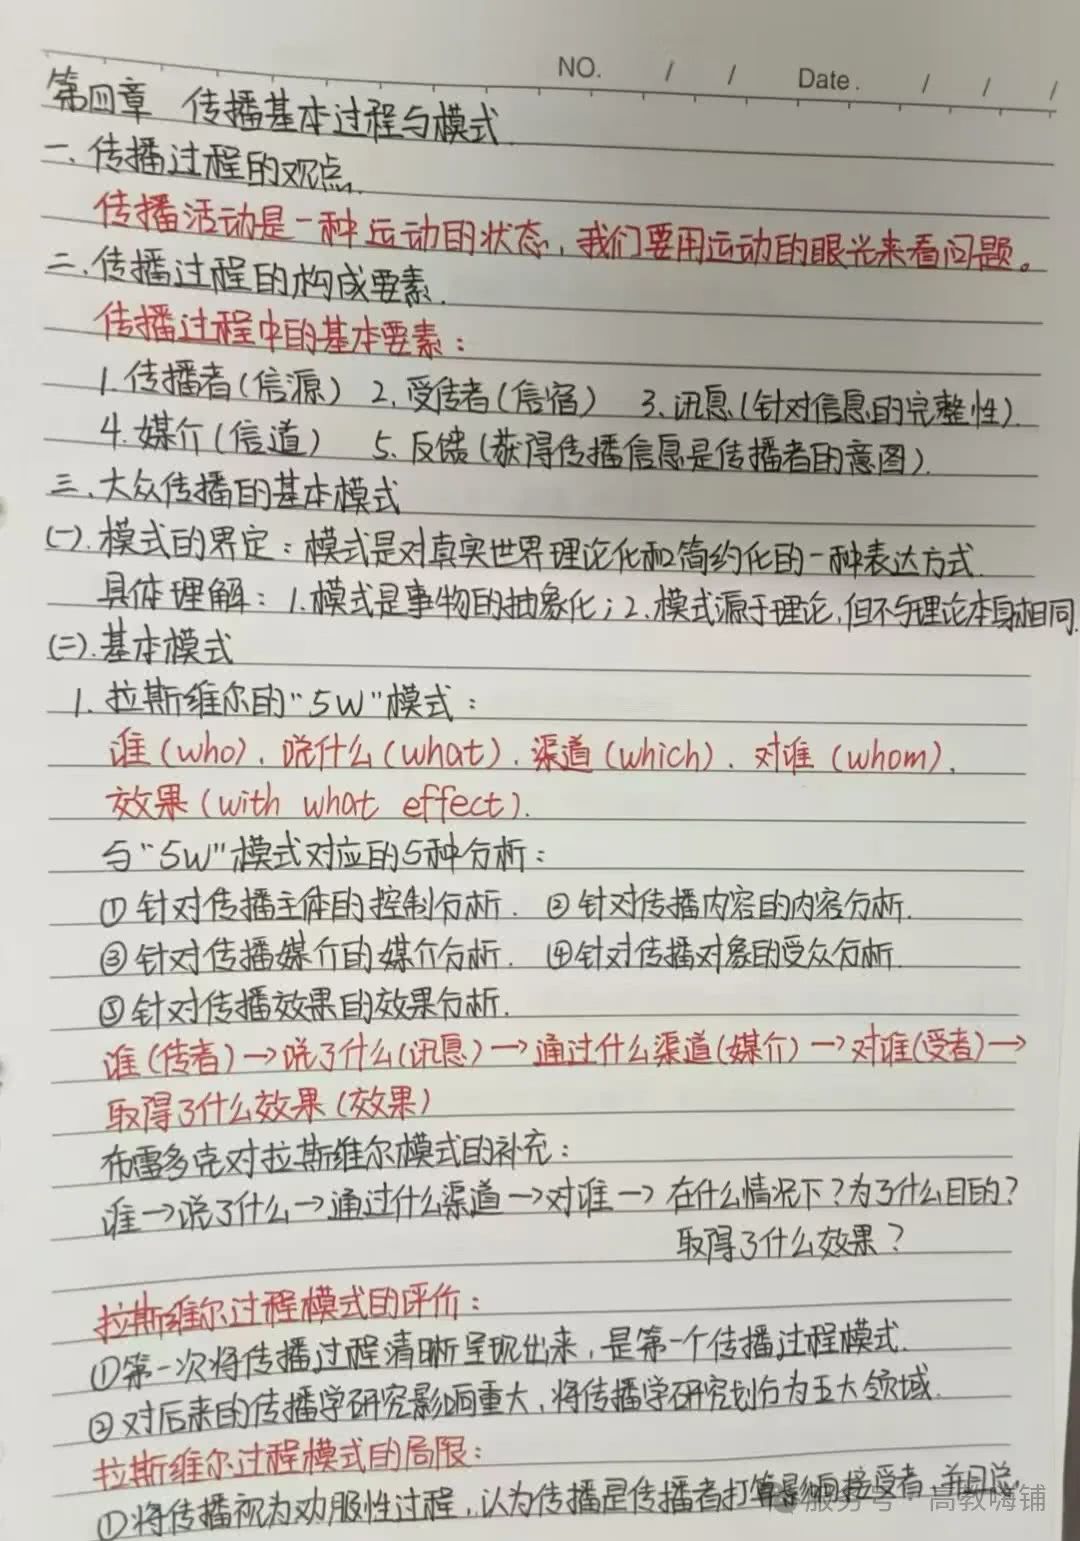 NO. / / Date. / / /
第四章 传播基本过程与模式
一、传播过程的观点
传播活动是一种运动的状态，我们要用运动的眼光来看问题。
二、传播过程的构成要素
传播过程中的基本要素：
1.传播者(信源) 2.受传者(信宿) 3.讯息(针对信息的完整性)
4.媒介(信道) 5.反馈(获得传播信息是传播者的意图)
三、大众传播的基本模式
(一).模式的界定：模式是对真实世界理论化和简约化的一种表达方式.
具体理解：1.模式是事物的抽象化；2.模式源于理论,但不与理论本身相同.
(二).基本模式
1.拉斯维尔的"5W"模式：
谁(who)、说什么(what)、渠道(which)、对谁(whom)、
效果(with what effect).
与"5W"模式对应的5种分析：
①针对传播主体的控制分析. ②针对传播内容的内容分析.
③针对传播媒介的媒介分析. ④针对传播对象的受众分析.
⑤针对传播效果的效果分析.
谁(传者)→说了什么(讯息)→通过什么渠道(媒介)→对谁(受者)→
取得了什么效果(效果)
布雷多克对拉斯维尔模式的补充：
谁→说了什么→通过什么渠道→对谁→在什么情况下?为了什么目的?
取得了什么效果?
拉斯维尔过程模式的评价：
①第一次将传播过程清晰呈现出来,是第一个传播过程模式.
②对后来的传播学研究影响重大,将传播学研究划分为五大领域.
拉斯维尔过程模式的局限：
①将传播视为劝服性过程,认为传播是传播者打算影响接受者,并且总
服务号·高教嗨铺